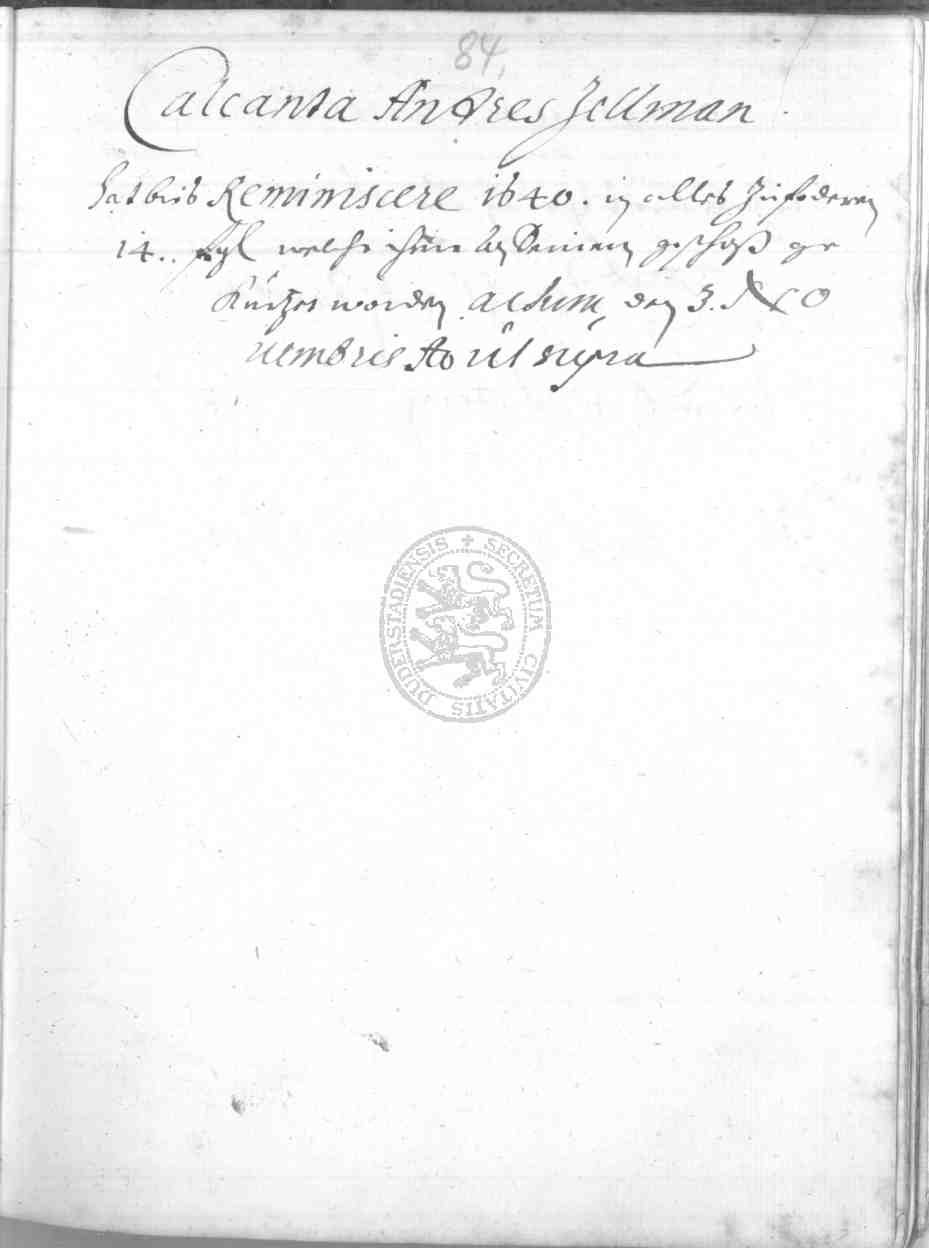 84,
Calcanta Andres Jellman.
hat bis Reminiscere 1640. in alles Zufoderen
14.. welche ihme an Seinem geschoß ge
Kürtzet worden actum, den 3. No
uembris Ao ût supra
SECRETUM CIVITATIS DUDERSTADIENSIS